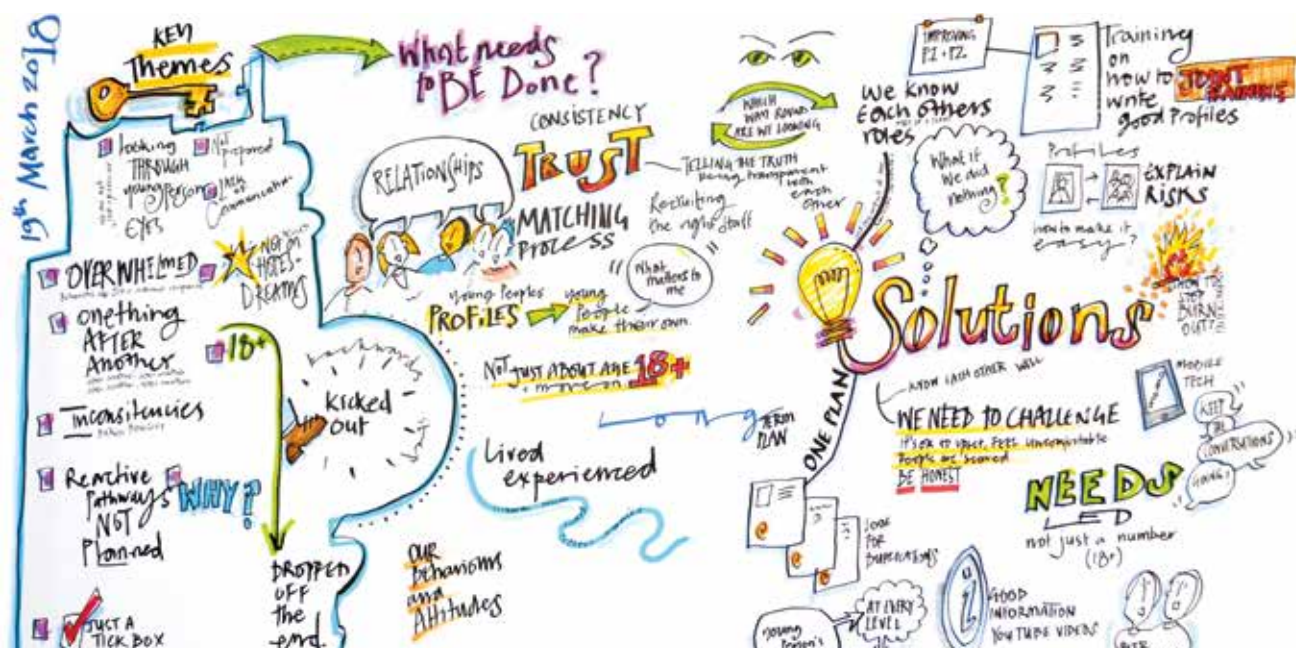 19th March 2018
KEY
Themes
Looking
THROUGH
young Person
EYES
Not
prepared
LACK
of
OVERWHELMED
NOT ON
HOPES-
DREAMS
onething
AFTER
Another
18+
Inconsitencies
Reactive
Pathways
NOT
Planned
WHY?
JUST A
TICK BOX
backwards
kicked
out
DROPPED
OFF
the
end.
What needs
to BE Done?
RELATIONSHIPS
CONSISTENCY
TRUST
TELLING THE TRUTH
being transparent
with
each
other
MATCHING
Process
Recruiting
the right staff
"What
matters to
me"
young Peoples
PROFILES
young
People
make their own.
NOT JUST ABOUT AGE 18+
LONG TERM
PLAN
Lived
experienced
OUR
Behaviours
and
Attitudes
WHICH
WAY ROUND
ARE WE LOOKING
we know
Each others
roles
IMPROVING
P1 + P2
Training
on
how to
write
good Profiles
JOINT
TRAINING
What if
we did
nothing?
Profiles
EXPLAIN
RISKS
how to make it
easy?
HOW TO
STOP
BURN
OUT?
Solutions
ONE PLAN
KNOW EACH OTHER WELL
WE NEED TO CHALLENGE
it's ok to upset, feel uncomfortable
People are scared
BE HONEST
MOBILE
TECH
KEEP
THE
CONVERSATIONS
GOING!
NEEDS
LED
not just a number
(18+)
LOOK
FOR
DUPLICATIONS
young
Person's
AT EVERY
LEVEL
i
GOOD
INFORMATION
YOUTUBE VIDEOS